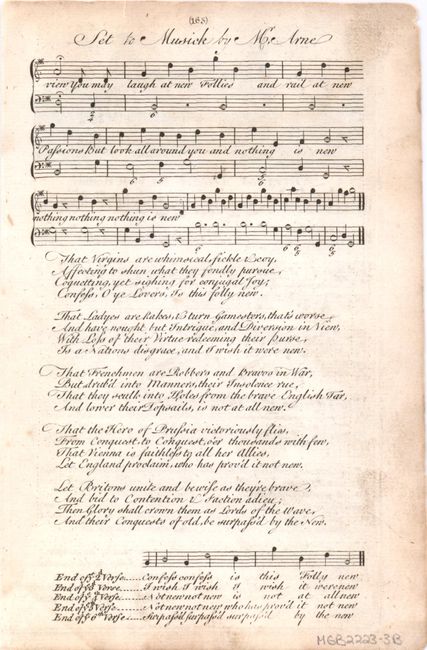 (168)
Set to Musick by Mr. Arne
view You may laugh at new Follies and rail at new
Passions But look all around you and nothing is new
nothing nothing nothing is new
That Virgins are whimsical, fickle & coy,
Affecting to shun what they fondly pursue,
Coquetting, yet sighing for conjugal Joy;
Confess, O ye Lovers, Is this folly new.
That Ladyes are Rakes, & turn Gamestors, that's worse,
And have nought but Intrigue, and Diversion in View,
With Loss of their Virtue redeeming their Purse,
Is a Nations disgrace, and I wish it were new.
That Frenchmen are Robbers and Bravos in War,
But drub'd into Manners, their Insolence rue,
That they sculk into Holes from the brave English Tar,
And lower their Topsails, is not at all new.
That the Hero of Prussia victoriously flies,
From Conquest, to Conquest, o'er thousands with few,
That Vienna is faithless to all her Allies,
Let England proclaim, who has prov'd it not new.
Let Britons unite and be wise as they're brave,
And bid to Contention & Faction adieu;
Then Glory shall crown them as Lords of the Wave,
And their Conquests of old, be surpass'd by the New.
End of ye 2d Verse...... Confess confess is this Folly new
End of ye 3d Verse...... I wish I wish I wish it were new
End of ye 4th Verse...... Not new not new is not at all new
End of ye 5th Verse...... Not new not new who has prov'd it not new
End of ye 6th Verse...... Surpass'd surpass'd surpass'd by the new
MGB2223-3B